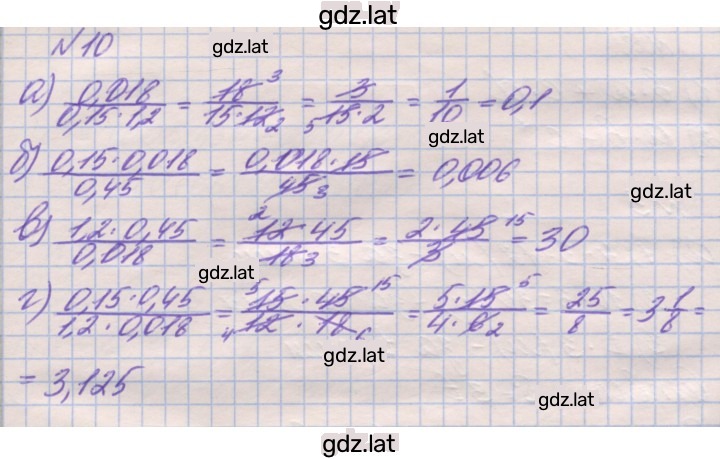 gdz.lat
№10
gdz.lat
а) 0,018/(0,15·1,2) = 18³/(15·12₂) = 3/(₅15·2) = 1/10 = 0,1
gdz.lat
б) (0,15·0,018)/0,45 = (0,018·15)/45₃ = 0,006
gdz.lat
в) (1,2·0,45)/0,018 = (²12·45)/18₃ = (2·45¹⁵)/3 = 30
gdz.lat
г) (0,15·0,45)/(1,2·0,018) = (⁵15·45¹⁵)/(₄12·18₆) = (5·15⁵)/(4·6₂) = 25/8 = 3 1/8 =
gdz.lat
= 3,125
gdz.lat
gdz.lat